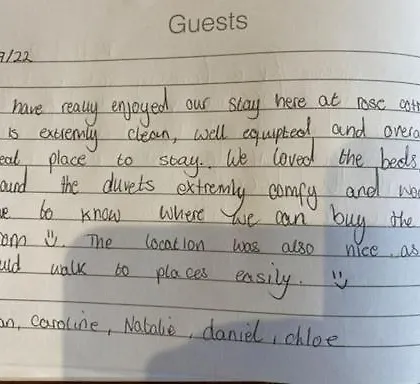 Guests
9/22
have really enjoyed our stay here at rose cott
is extremly clean, well equipted and overa
eat place to stay. We loved the beds,
ound the duvets extremly comfy and wo
e to know where we can buy the
om :). The location was also nice as
uld walk to places easily. :)
an, caroline, Natalie, daniel, chloe